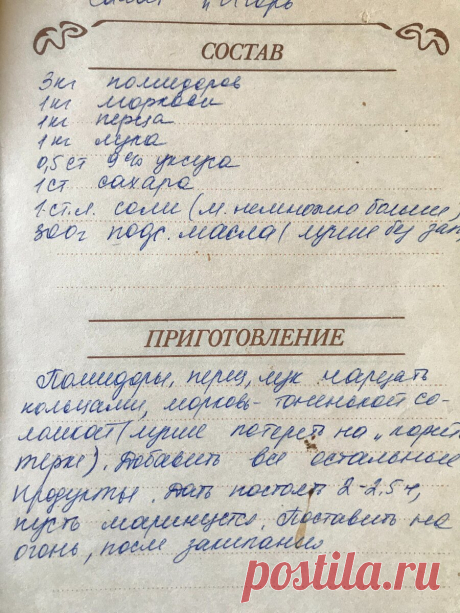 Салат "Игорь
СОСТАВ
3кг помидоров
1кг моркови
1кг перца
1кг лука
0,5 ст 9% уксуса
1 ст. сахара
1.ст.л. соли (м. немножко больше)
300г подс. масла (лучше без зап.
ПРИГОТОВЛЕНИЕ
Помидоры, перец, лук нарезать
кольцами, морковь- тоненькой со-
ломкой (лучше потереть на „корей
терке). Добавить все остальные
продукты. Дать постоят 2-2,5ч,
пусть маринуется. Поставить на
огонь, после закипания
postila.ru